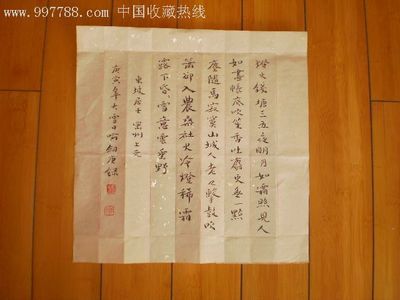 www.997788.com 中国收藏热线
燈火錢塘三五夜明月如霜照見人
如畫帳底吹笙香吐麝更無一點
塵隨馬寂寞山城人老也擊鼓吹
簫卻入農桑社火冷燈稀霜
露下昏昏雪意雲垂野
東坡居士 密州上元
庚寅年大雪日